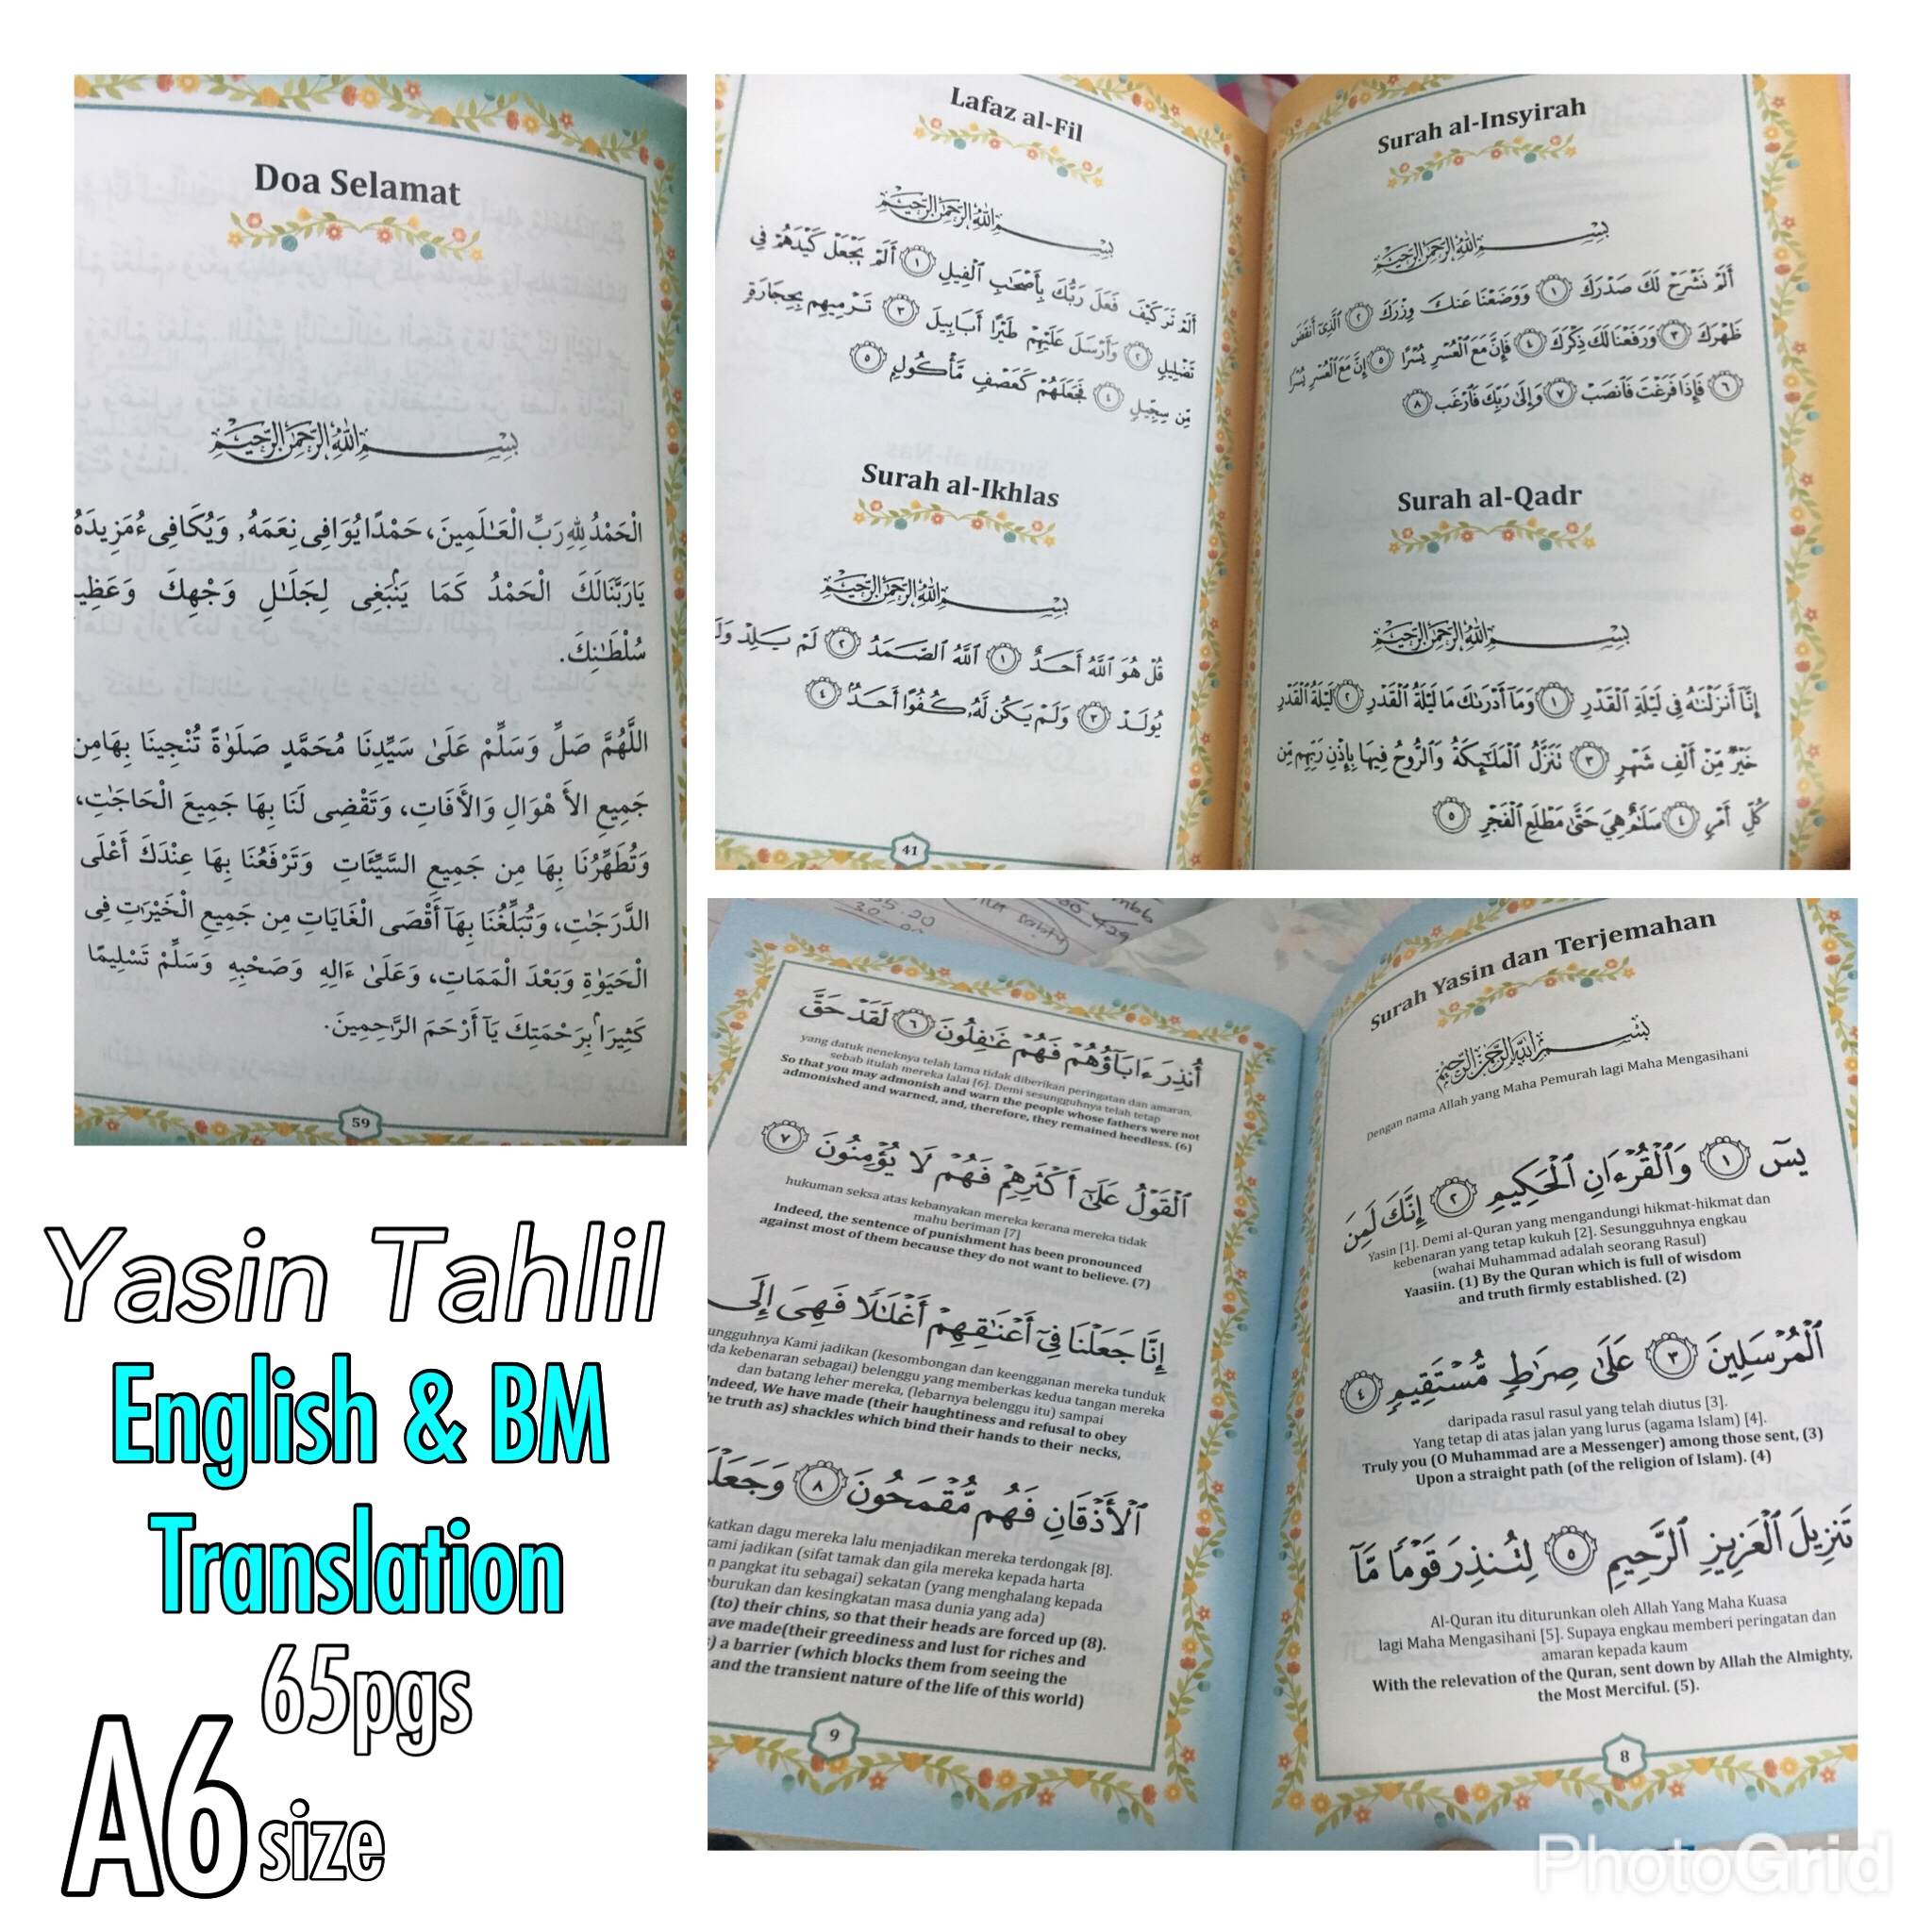 Doa Selamat
بِسْمِ اللَّهِ الرَّحْمَٰنِ الرَّحِيمِ
الْحَمْدُ لِلّٰهِ رَبِّ الْعَـٰلَمِينَ، حَمْدًا يُوَافِى نِعَمَهُ, وَيُكَافِىءُ مَزِيدَهُ
يَارَبَّنَالَكَ الْحَمْدُ كَمَا يَنْۢبَغِى لِجَلَـٰلِ وَجْهِكَ وَعَظِيـ
سُلْطَـٰنِكَ.
اللَّهُمَّ صَلِّ وَسَلِّمْ عَلَىٰ سَيِّدِنَا مُحَمَّدٍ صَلَوٰةً تُنْجِينَا بِهَامِن
جَمِيعِ الأَ هْوَالِ وَالأَفَاتِ، وَتَقْضِى لَنَا بِهَا جَمِيعَ الْحَاجَـٰتِ،
وَتُطَهِّرُنَا بِهَا مِن جَمِيعِ السَّيِّئَاتِ وَتَرْفَعُنَا بِهَا عِنْدَكَ أَعْلَى
الدَّرَجَـٰتِ، وَتُبَلِّغُنَا بِهَآ أَقْصَى الْغَايَاتِ مِن جَمِيعِ الْخَيْرَٰتِ فِى
الْحَيَوٰةِ وَبَعْدَ الْمَمَاتِ، وَعَلَىٰ ءَالِهِ وَصَحْبِهِ وَسَلِّمْ تَسْلِيمًا
كَثِيرًاۢ بِرَحْمَتِكَ يَآ أَرْحَمَ الرَّاحِمِينَ.
59
Lafaz al-Fil
بِسْمِ اللَّهِ الرَّحْمَٰنِ الرَّحِيمِ
أَلَمْ تَرَ كَيْفَ فَعَلَ رَبُّكَ بِأَصْحَـٰبِ ٱلْفِيلِ ١ أَلَمْ يَجْعَلْ كَيْدَهُمْ فِي
تَضْلِيلٍ ٢ وَأَرْسَلَ عَلَيْهِمْ طَيْرًا أَبَابِيلَ ٣ تَرْمِيهِم بِحِجَارَةٍ
مِّن سِجِّيلٍ ٤ فَجَعَلَهُمْ كَعَصْفٍ مَّأْكُولٍ ٥
Surah al-Ikhlas
بِسْمِ اللَّهِ الرَّحْمَٰنِ الرَّحِيمِ
قُلْ هُوَ ٱللَّهُ أَحَدٌ ١ ٱللَّهُ ٱلصَّمَدُ ٢ لَمْ يَلِدْ وَلَـ
يُولَدْ ٣ وَلَمْ يَكُن لَّهُۥ كُفُوًا أَحَدٌۢ ٤
41
Surah al-Insyirah
بِسْمِ اللَّهِ الرَّحْمَٰنِ الرَّحِيمِ
أَلَمْ نَشْرَحْ لَكَ صَدْرَكَ ١ وَوَضَعْنَا عَنكَ وِزْرَكَ ٢ ٱلَّذِىٓ أَنقَضَ
ظَهْرَكَ ٣ وَرَفَعْنَا لَكَ ذِكْرَكَ ٤ فَإِنَّ مَعَ ٱلْعُسْرِ يُسْرًا ٥ إِنَّ مَعَ ٱلْعُسْرِ يُسْرًا
٦ فَإِذَا فَرَغْتَ فَٱنصَبْ ٧ وَإِلَىٰ رَبِّكَ فَٱرْغَب ٨
Surah al-Qadr
بِسْمِ اللَّهِ الرَّحْمَٰنِ الرَّحِيمِ
إِنَّآ أَنزَلْنَـٰهُ فِى لَيْلَةِ ٱلْقَدْرِ ١ وَمَآ أَدْرَىٰكَ مَا لَيْلَةُ ٱلْقَدْرِ ٢ لَيْلَةُ ٱلْقَدْرِ
خَيْرٌ مِّنْ أَلْفِ شَهْرٍ ٣ تَنَزَّلُ ٱلْمَلَـٰٓئِكَةُ وَٱلرُّوحُ فِيهَا بِإِذْنِ رَبِّهِم مِّن
كُلِّ أَمْرٍ ٤ سَلَـٰمٌ هِىَ حَتَّىٰ مَطْلَعِ ٱلْفَجْرِ ٥
Surah Yasin dan Terjemahan
بِسْمِ اللَّهِ الرَّحْمَٰنِ الرَّحِيمِ
Dengan nama Allah yang Maha Pemurah lagi Maha Mengasihani
يسٓ ١ وَٱلْقُرْءَانِ ٱلْحَكِيمِ ٢ إِنَّكَ لَمِنَ
Yasin [1]. Demi al-Quran yang mengandungi hikmat-hikmat dan
kebenaran yang tetap kukuh [2]. Sesungguhnya engkau
(wahai Muhammad adalah seorang Rasul)
Yaasiin. (1) By the Quran which is full of wisdom
and truth firmly established. (2)
ٱلْمُرْسَلِينَ ٣ عَلَىٰ صِرَٰطٍ مُّسْتَقِيمٍ ٤
daripada rasul rasul yang telah diutus [3].
Yang tetap di atas jalan yang lurus (agama Islam) [4].
Truly you (O Muhammad are a Messenger) among those sent, (3)
Upon a straight path (of the religion of Islam). (4)
تَنزِيلَ ٱلْعَزِيزِ ٱلرَّحِيمِ ٥ لِتُنذِرَ قَوْمًا مَّآ
Al-Quran itu diturunkan oleh Allah Yang Maha Kuasa
lagi Maha Mengasihani [5]. Supaya engkau memberi peringatan dan
amaran kepada kaum
With the relevation of the Quran, sent down by Allah the Almighty,
the Most Merciful. (5).
8
أُنذِرَ ءَابَآؤُهُمْ فَهُمْ غَـٰفِلُونَ ٦ لَقَدْ حَقَّ
yang datuk neneknya telah lama tidak diberikan peringatan dan amaran,
sebab itulah mereka lalai [6]. Demi sesungguhnya telah tetap
So that you may admonish and warn the people whose fathers were not
admonished and warned, and, therefore, they remained heedless. (6)
ٱلْقَوْلُ عَلَىٰٓ أَكْثَرِهِمْ فَهُمْ لَا يُؤْمِنُونَ ٧
hukuman seksa atas kebanyakan mereka kerana mereka tidak
mahu beriman [7]
Indeed, the sentence of punishment has been pronounced
against most of them because they do not want to believe. (7)
إِنَّا جَعَلْنَا فِىٓ أَعْنَـٰقِهِمْ أَغْلَـٰلًا فَهِىَ إِلَى
ungguhnya Kami jadikan (kesombongan dan keengganan mereka tunduk
da kebenaran sebagai) belenggu yang memberkas kedua tangan mereka
dan batang leher mereka, (lebarnya belenggu itu) sampai
Indeed, We have made (their haughtiness and refusal to obey
he truth as) shackles which bind their hands to their necks,
ٱلْأَذْقَانِ فَهُم مُّقْمَحُونَ ٨ وَجَعَلْـ
katkan dagu mereka lalu menjadikan mereka terdongak [8].
ami jadikan (sifat tamak dan gila mereka kepada harta
n pangkat itu sebagai) sekatan (yang menghalang kepada
burukan dan kesingkatan masa dunia yang ada)
(to) their chins, so that their heads are forced up (8).
ave made(their greediness and lust for riches and
) a barrier (which blocks them from seeing the
and the transient nature of the life of this world)
9
Yasin Tahlil
English & BM
Translation
65pgs
A6 size
PhotoGrid